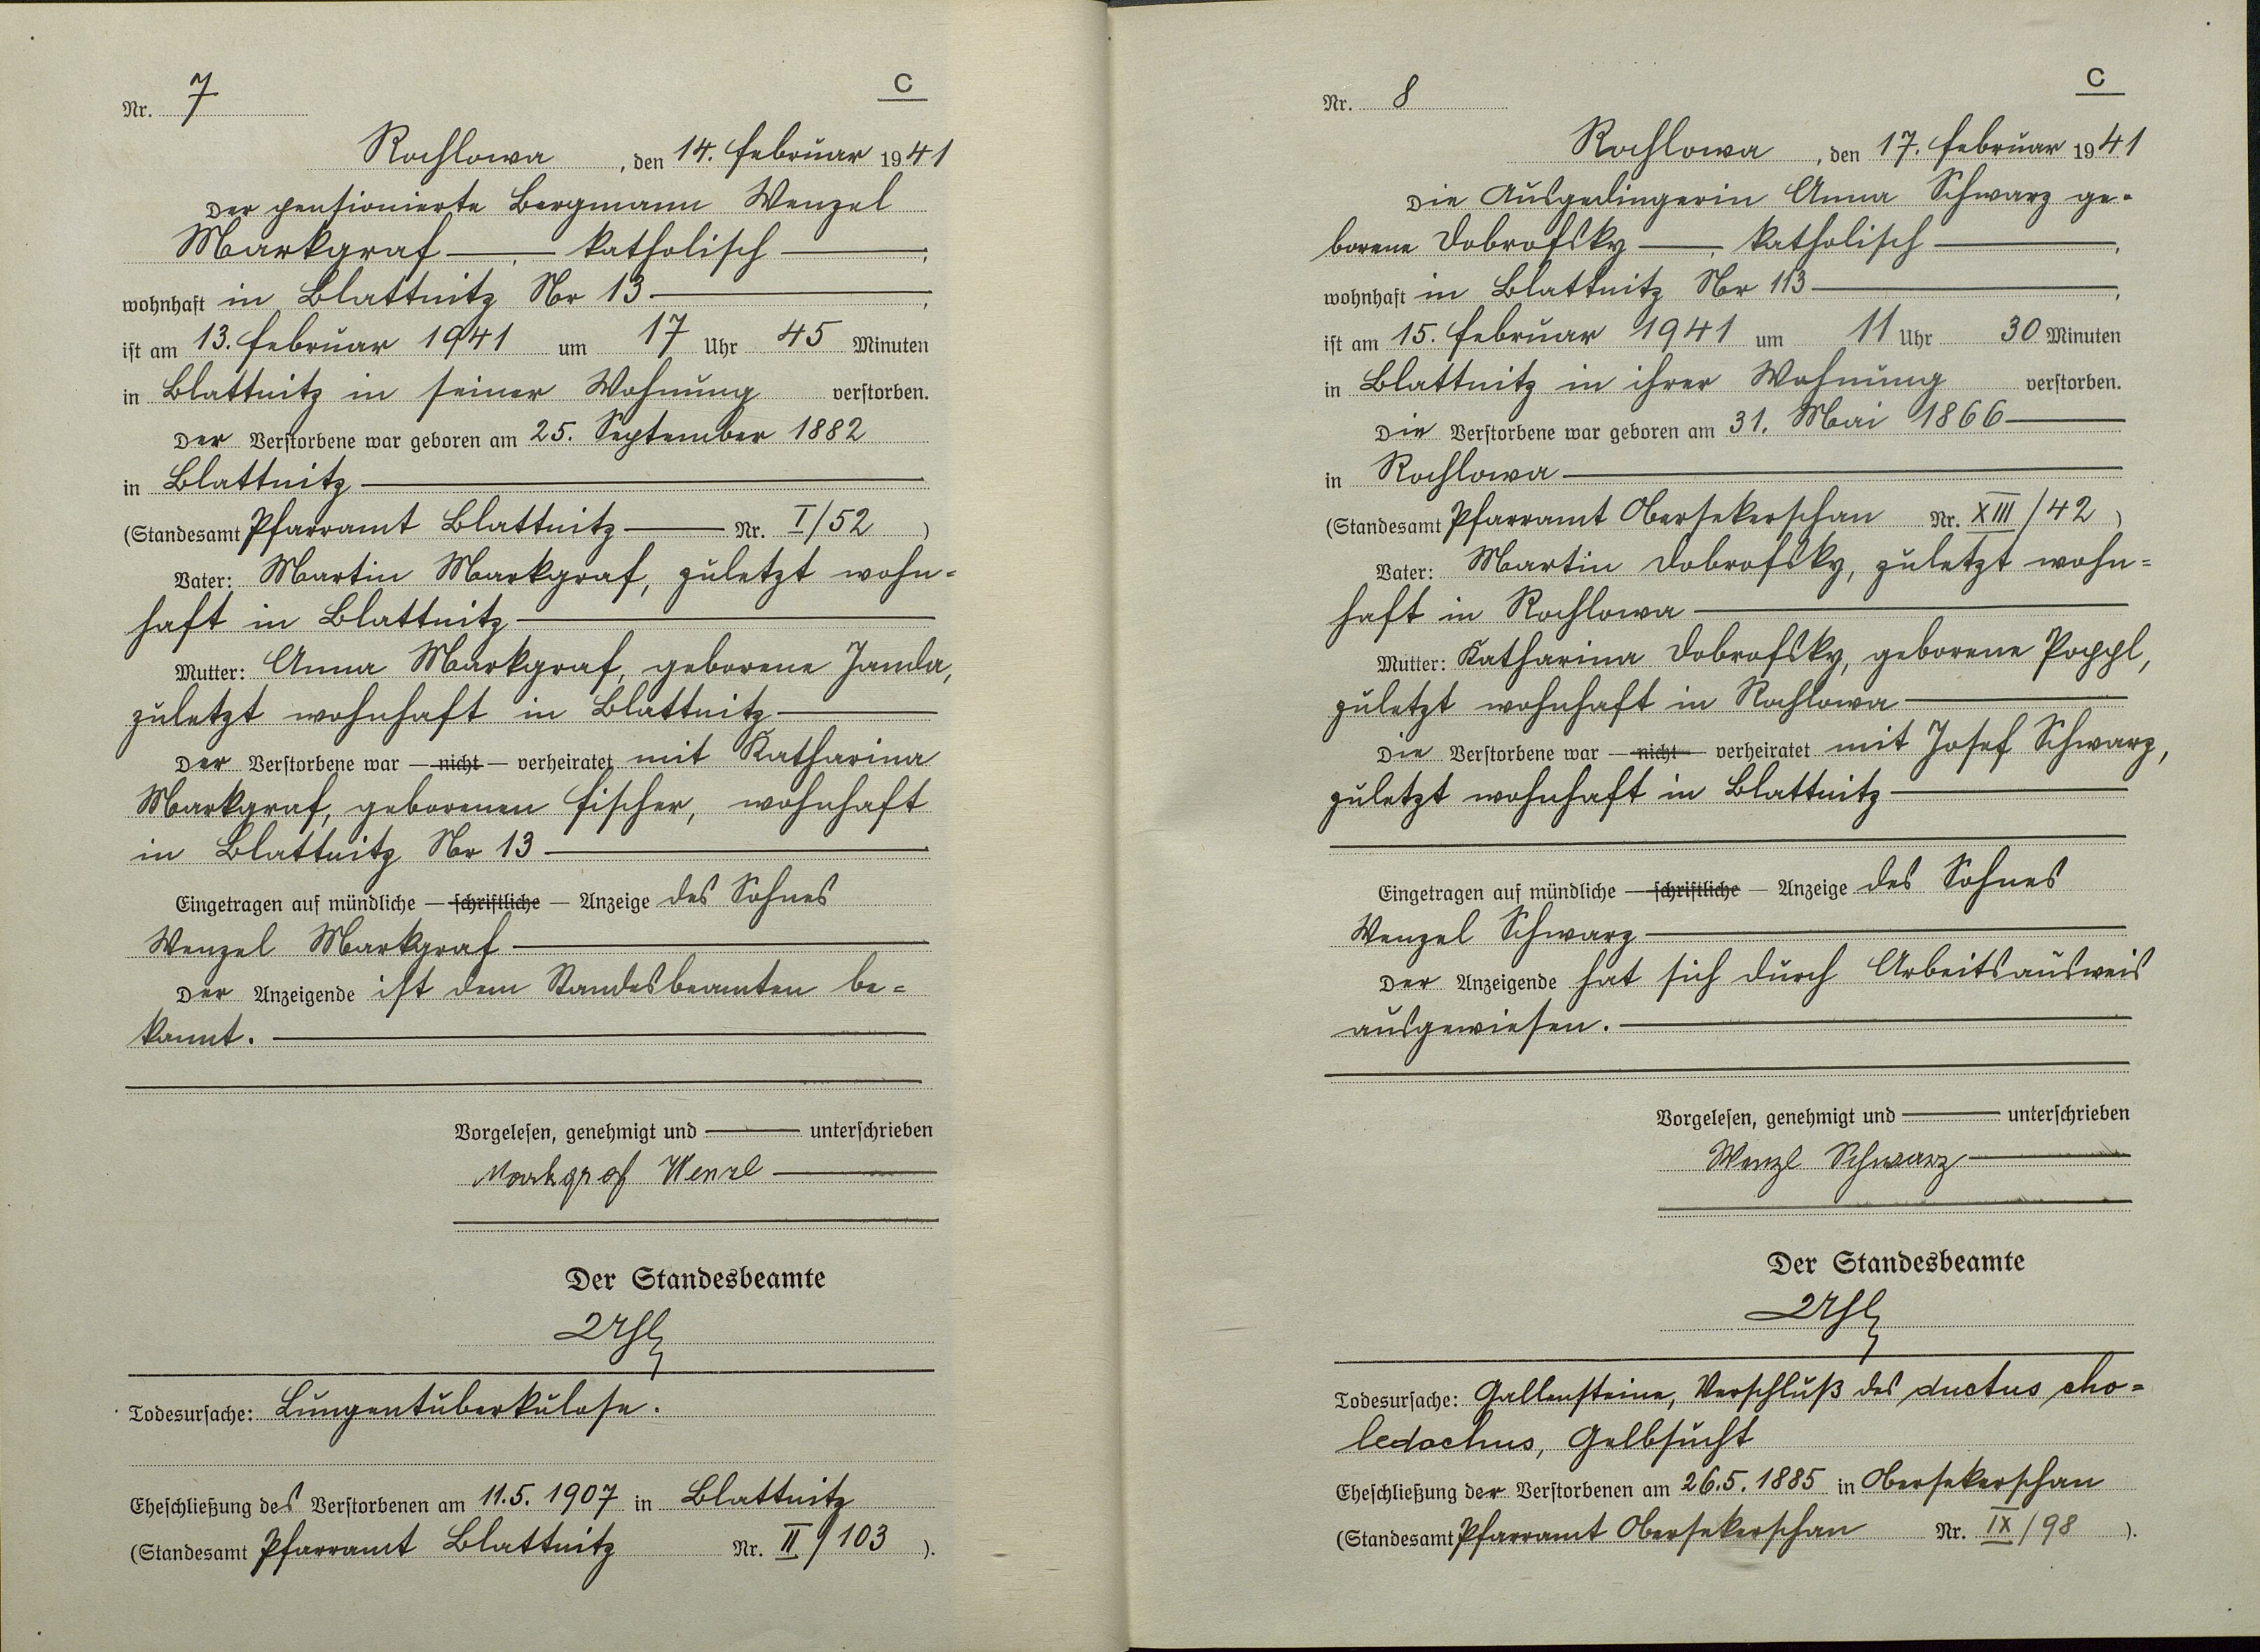 C
Nr. 7
Rochlowa, den 14. Februar 1941
Der pensionierte Bergmann Wenzel
Markgraf —, — katholisch —,
wohnhaft in Blattnitz Nr 13 —,
ist am 13. Februar 1941 um 17 Uhr 45 Minuten
in Blattnitz in seiner Wohnung verstorben.
Der Verstorbene war geboren am 25. September 1882
in Blattnitz —
(Standesamt Pfarramt Blattnitz — Nr. I/52)
Vater: Martin Markgraf, zuletzt wohn=
haft in Blattnitz —
Mutter: Anna Markgraf, geborene Janda,
zuletzt wohnhaft in Blattnitz —
Der Verstorbene war — nicht — verheiratet mit Katharina
Markgraf, geborenen Fischer, wohnhaft
in Blattnitz Nr 13 —
Eingetragen auf mündliche — schriftliche — Anzeige des Sohnes
Wenzel Markgraf —
Der Anzeigende ist dem Standesbeamten be=
kannt. —
Vorgelesen, genehmigt und — unterschrieben
Markgraf Wenzl —
Der Standesbeamte
Todesursache: Lungentuberkulose.
Eheschließung des Verstorbenen am 11.5.1907 in Blattnitz
(Standesamt Pfarramt Blattnitz Nr. II/103).
C
Nr. 8
Rochlowa, den 17. Februar 1941
Die Ausgedingerin Anna Schwarz ge-
borene Dobrofsky —, katholisch —,
wohnhaft in Blattnitz Nr 113 —,
ist am 15. Februar 1941 um 11 Uhr 30 Minuten
in Blattnitz in ihrer Wohnung verstorben.
Die Verstorbene war geboren am 31. Mai 1866 —
in Rochlowa —
(Standesamt Pfarramt Obersekerschan Nr. XIII/42)
Vater: Martin Dobrofsky, zuletzt wohn=
haft in Rochlowa —
Mutter: Katharina Dobrofsky, geborene Poppl,
zuletzt wohnhaft in Rochlowa —
Die Verstorbene war — nicht — verheiratet mit Josef Schwarz,
zuletzt wohnhaft in Blattnitz —
Eingetragen auf mündliche — schriftliche — Anzeige des Sohnes
Wenzel Schwarz —
Der Anzeigende hat sich durch Arbeitsausweis
ausgewiesen. —
Vorgelesen, genehmigt und — unterschrieben
Wenzl Schwarz —
Der Standesbeamte
Todesursache: Gallensteine, Verschluß des ductus cho=
ledochus, Gelbsucht
Eheschließung der Verstorbenen am 26.5.1885 in Obersekerschan
(Standesamt Pfarramt Obersekerschan Nr. IX/98).